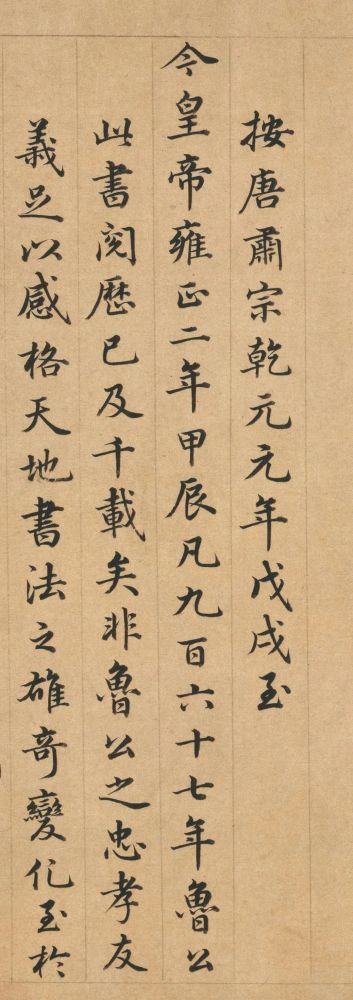 按唐肅宗乾元元年戊戌至
今皇帝雍正二年甲辰凡九百六十七年魯公
此書閱歷已及千載矣非魯公之忠孝友
義足以感格天地書法之雄奇變化至於